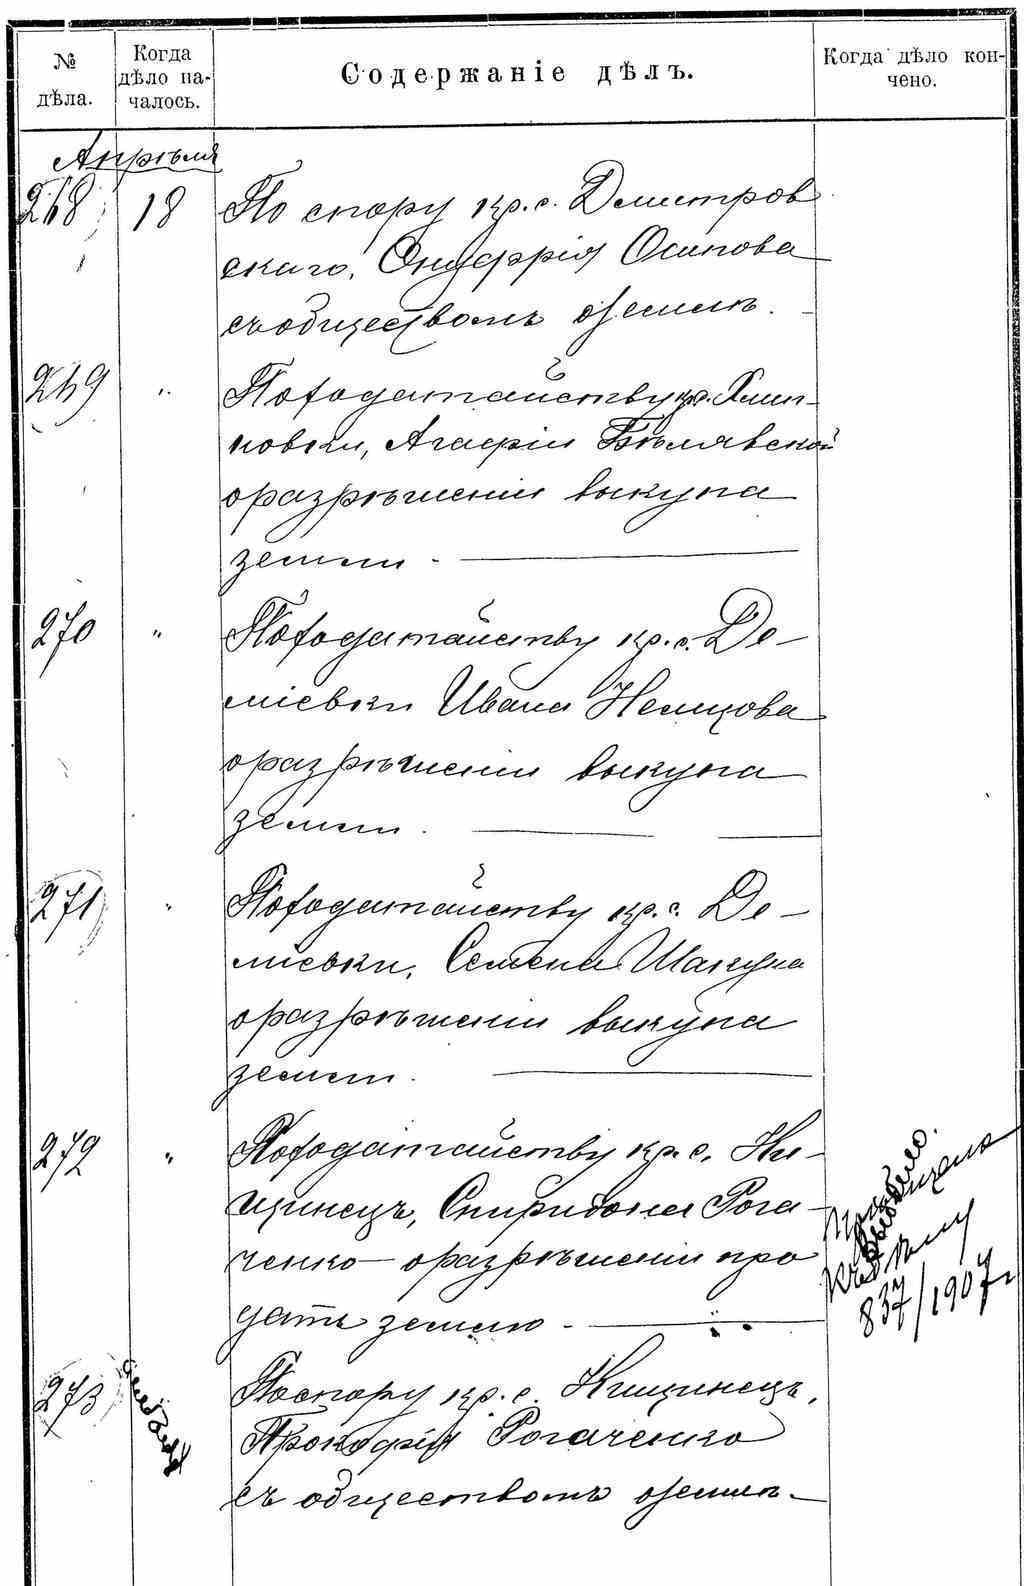 № дѣла.
Когда дѣло на-
чалось.
Содержаніе дѣлъ.
Когда дѣло кон-
чено.
Апрѣля
268 18 По спору кр. с. Дмитров
скаго, Онуфрія Осипова
съ обществомъ о земли.
269 " По ходатайству кр.
Агафіи Бѣлявской
о разрѣшеніи выкупа
земли. —
270 " По ходатайству кр. с. Де-
міевки Ивана Немцова
о разрѣшеніи выкупа
земли. —
271 " По ходатайству кр. с. Де-
міевки, Семена Шакуна
о разрѣшеніи выкупа
земли. —
272 " По ходатайству кр. с. Ки-
щинецъ, Спиридона Рога-
ченко — о разрѣшеніи про
дать землю — 
Пріобщено
къ дѣлу
837/1907 г
273 По спору кр. с. Кищинецъ,
Прокофія Рогаченко
съ обществомъ о земли —